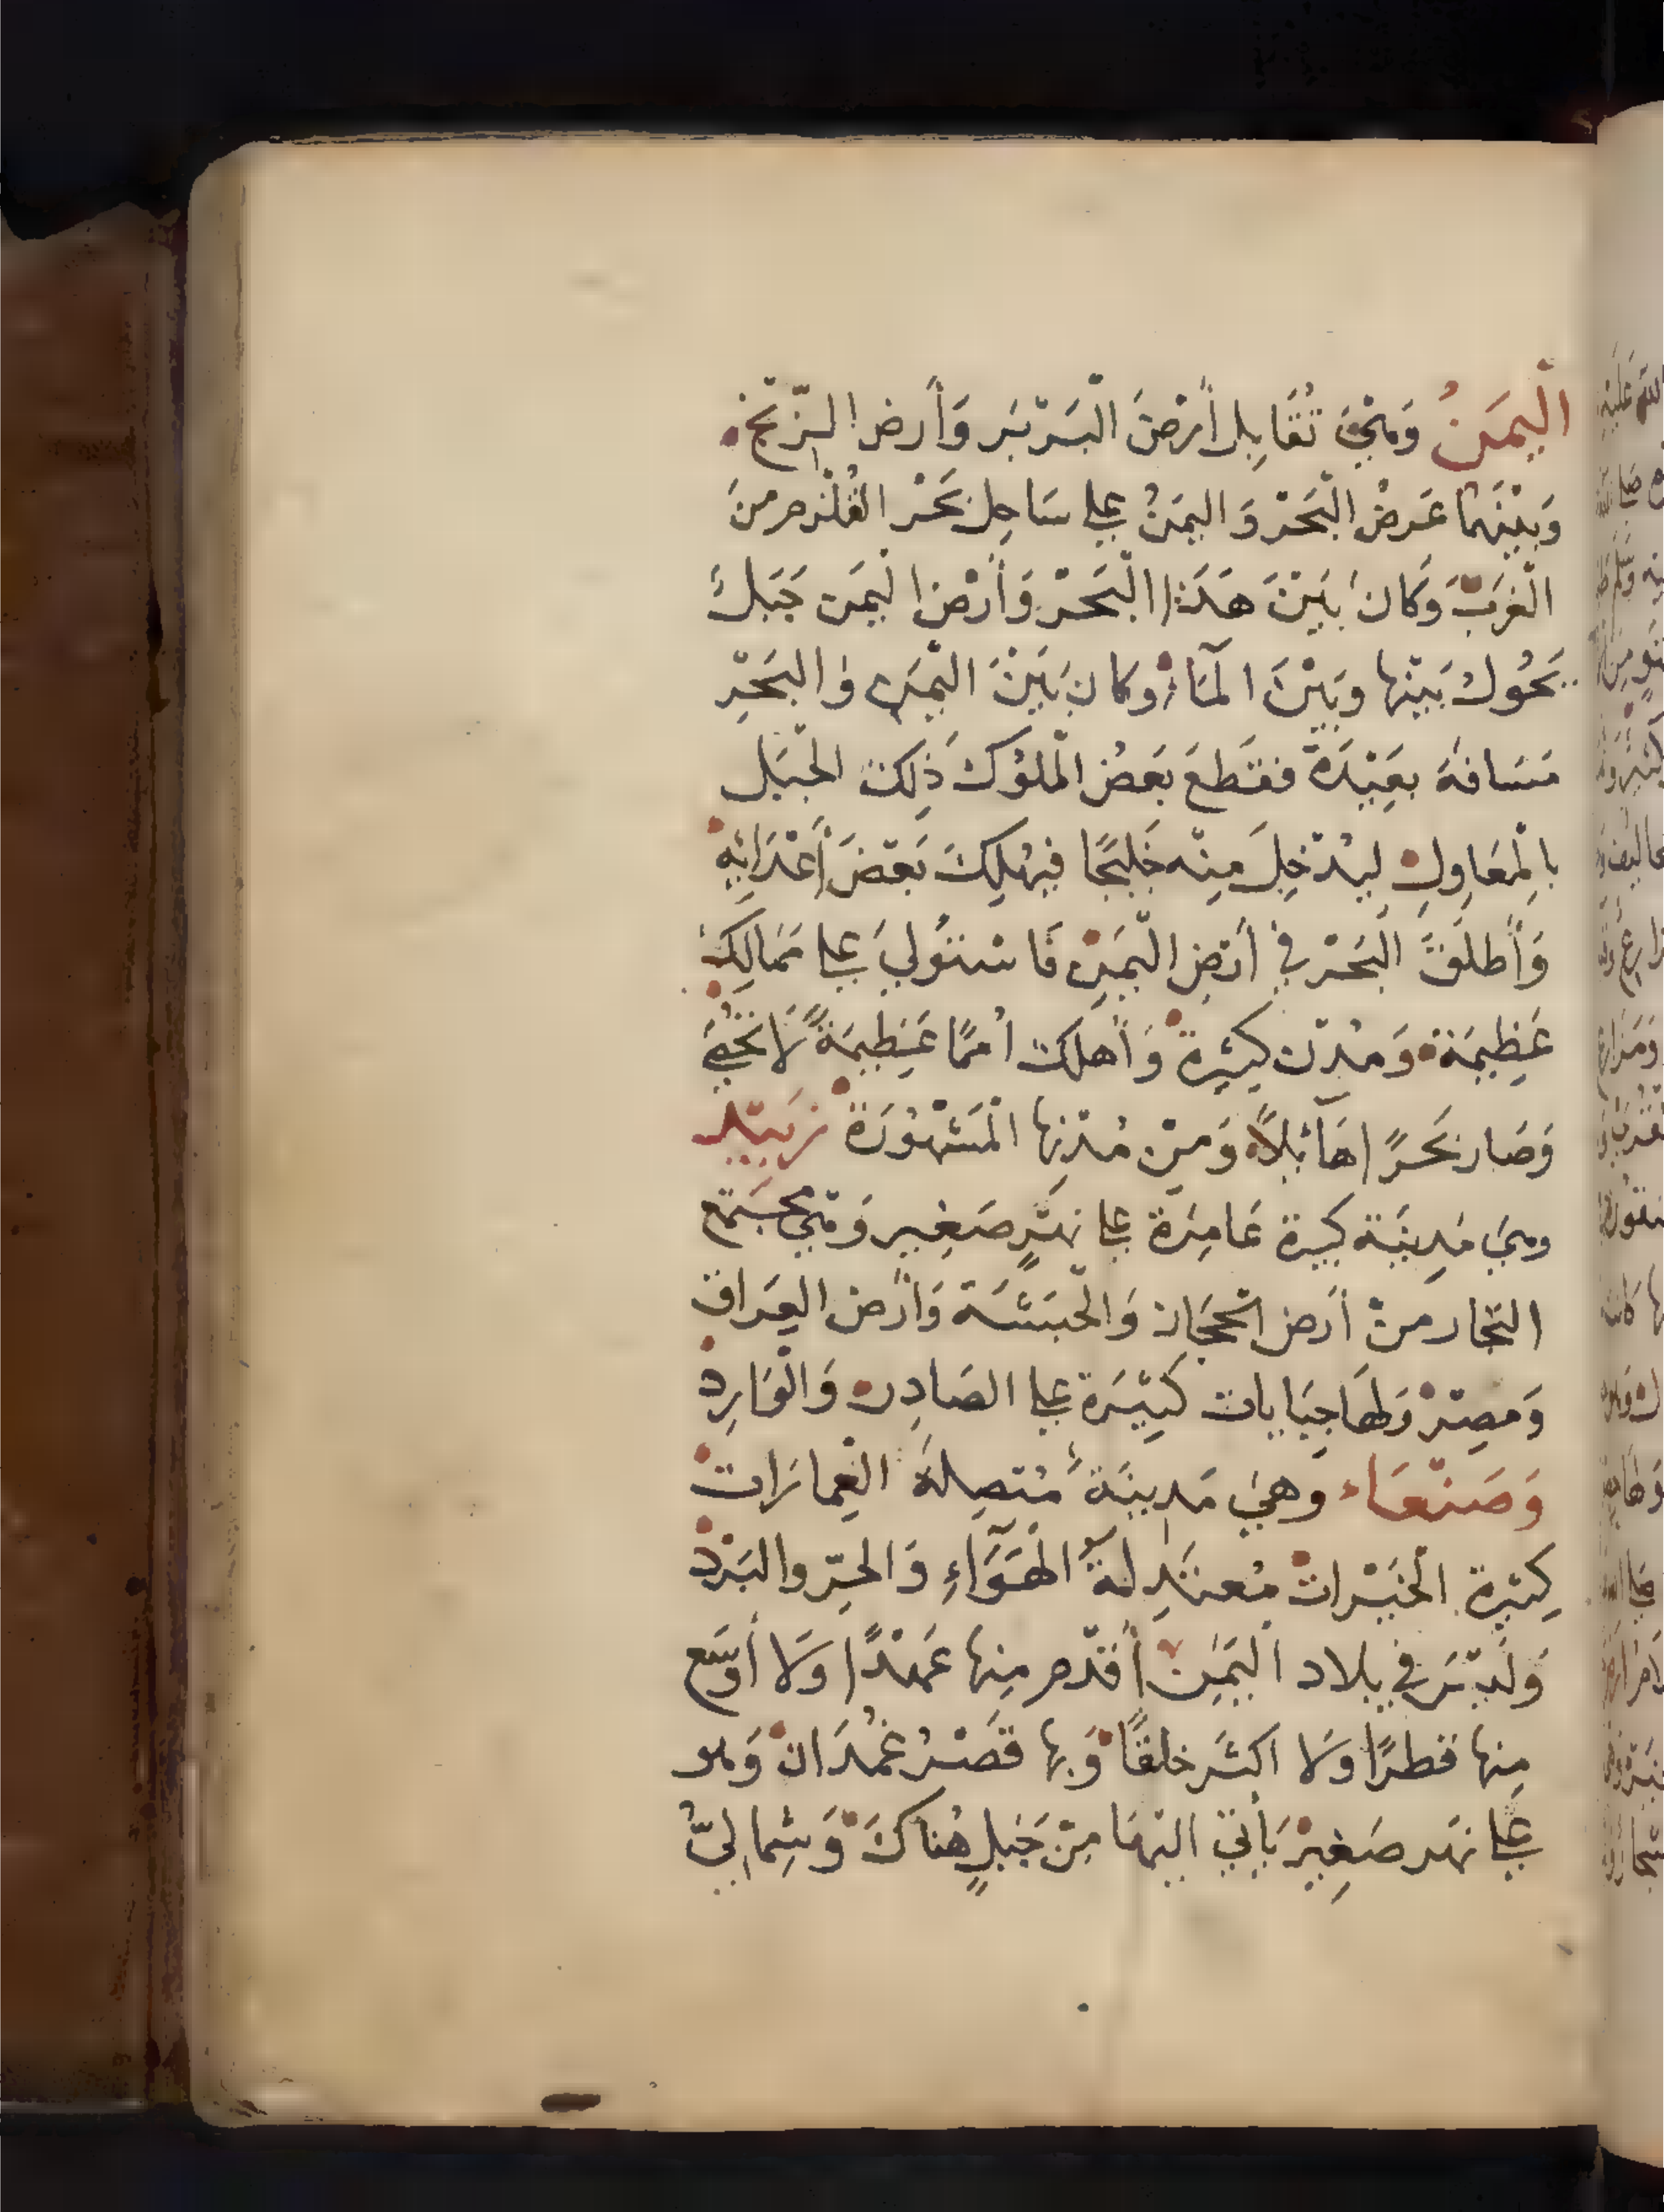 الْيَمَنُ وَهِيَ تُقَابِل أَرْضَ الْبَرْبَر وَأَرض الزّنْج
وَبَيْنَهُمَا عَرضْ الْبَحْر وَ اليمَنُ علي سَاحِل بَحْر القُلْزم منَ
الْغَرب وَكَان بَيْنَ هَذَا الْبَحْر وَأَرْض الْيَمَن جَبَلٌ
يَحُولُ بَيْنَها وَبَيْنَ الْمَاءِ وكان بَيْنَ الْيَمَنِ وَالبَحْرِ
مَسَافة بعَيْدَة فقَطعَ بَعضُ الْملُوك ذَلِكَ الْجَبَل
بالْمَعَاوِلِ ليُدْخِلَ مِنْه خَلِيجًا فيُهْلِكَ بَعْضَ أَعْدَائِهِ
وَأَطلَقَ الْبَحْر في أَرضِ الْيَمَنِ فَاسْتَوْليَ علي مَمَالِكَ
عَظِيمَة وَمُدن كَثِيرة وَأَهلكَ أُممًا عَظِيمَةً لَا تُحْصَى
وَصَار بَحْرًا هَآئلًا وَمِنْ مُدْنِها الْمَشْهُورَة زَبِيْد
وهيَ مَدِينَة كبيرة عَامِرَة علي نَهْرٍ صَغِير وَهِيَ مُجْتَمَع
التجار منْ أَرض الْحِجَاز وَالْحَبَشَة وَأَرض العِرَاق
وَمصِرْ وَلهَا جِبَايات كَثِيْرَة علي الصَادِر وَالْوَارِد
وَصَنْعَاء وَهيَ مَدِينَةٌ مُتَصِلة الْعِمارَات
كثيرة الْخَيْرات مُعتَدِلةُ الْهَوَآءِ وَالحَرّ والبَرْد
وَلَيْسَ في بلاد الْيَمَن أَقدَم مِنها عَهْدًا وَلا أَوْسَع
مِنها قطرًا وَلا اكثَر خلقًا وَبها قَصْرُ غُمْدَان وَهو
علي نَهر صَغِيرْ يَأتي اليَها مِنْ جَبلٍ هُناكَ وَشِماليّ